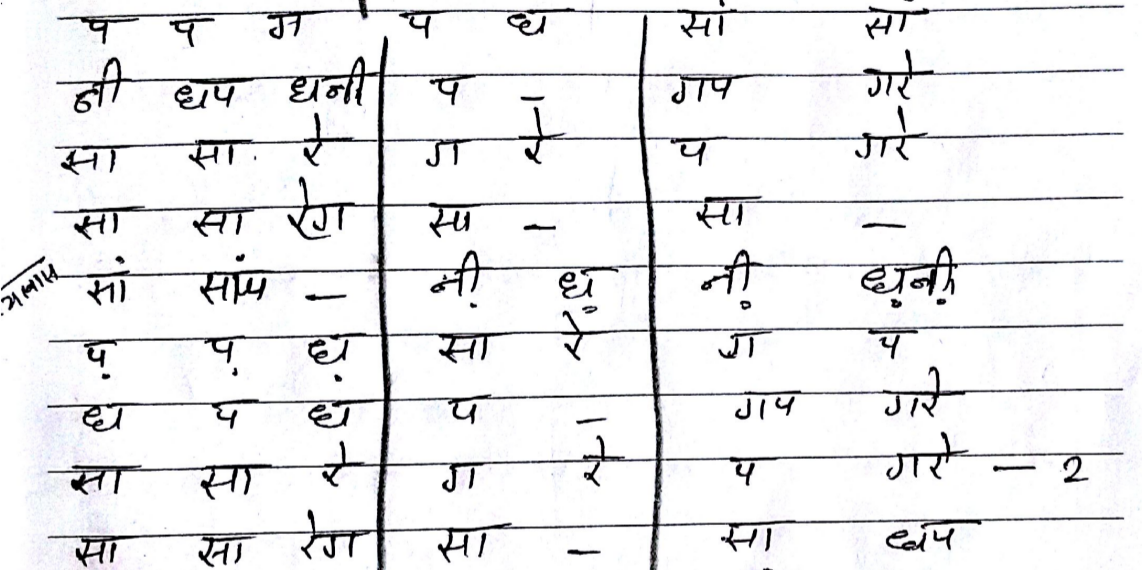 प प ग प ध सां सां
नी धप धनी प - गप गरे
सा सा रे ग रे प गरे
सा सा रेग सा - सा -
सां सांप - नी़ ध़ नी़ ध़नी़
प़ प़ ध़ सा रे ग प
ध प ध प - गप गरे
सा सा रे ग रे प गरे - 2
सा सा रेग सा - सा धप